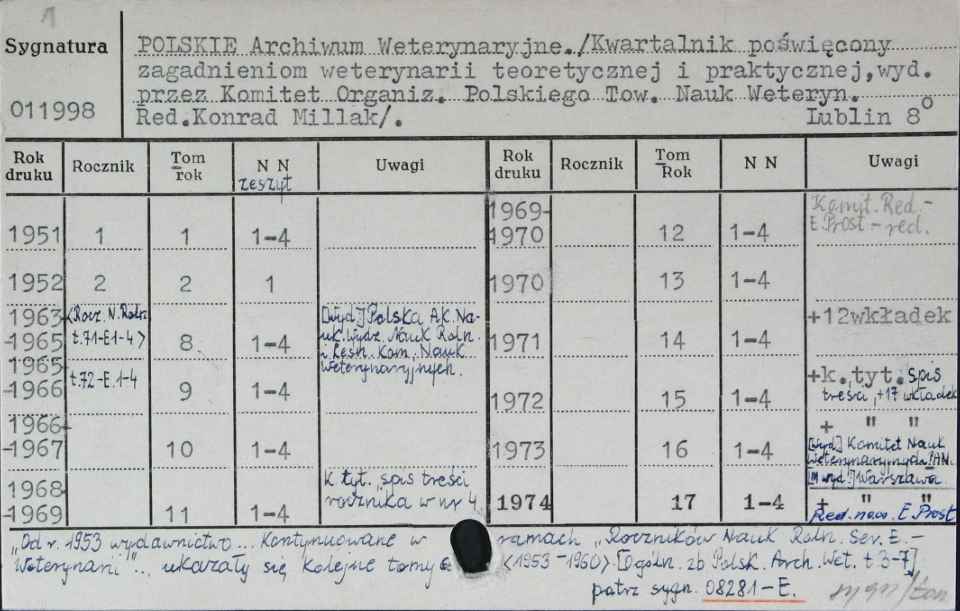 1
Sygnatura
011998
POLSKIE Archiwum Weterynaryjne./Kwartalnik poświęcony
zagadnieniom weterynarii teoretycznej i praktycznej,wyd.
przez Komitet Organiz. Polskiego Tow. Nauk Weteryn.
Red.Konrad Millak/. Lublin 8°
Rok druku Rocznik Tom rok N N zeszyt Uwagi
1951 1 1 1-4
1952 2 2 1
1963 <Rocz. N. Roln.
-1965 t.71-E1-4> 8 1-4
[Wyd.] Polska Ak. Na-
uk. Wydz. Nauk Roln.
i Leśn. Kom. Nauk
Weterynaryjnych.
1965-
-1966 t.72-E.1-4 9 1-4
1966-
-1967 10 1-4
1968-
-1969 11 1-4
K. tyt., spis treści
rocznika w nr 4
Rok druku Rocznik Tom Rok N N Uwagi
1969-
-1970 12 1-4
Komit. Red.-
E. Prost - red.
1970 13 1-4
1971 14 1-4 +12wkładek
1972 15 1-4 +k.,tyt. spis
treści, +17 wkładek
1973 16 1-4 + " "
[Wyd.] Komitet Nauk
Weterynaryjnych PAN.
[M wyd.] Warszawa
1974 17 1-4 + " "
Red. nacz. E. Prost
"Od r. 1953 wydawnictwo... kontynuowane w ramach "Roczników Nauk Roln. Ser. E.-
Weterynarii"... ukazały się kolejne tomy <1953-1960> [Ogóln. zb Polsk. Arch. Wet. t 3-7]
patrz sygn. 08281-E.